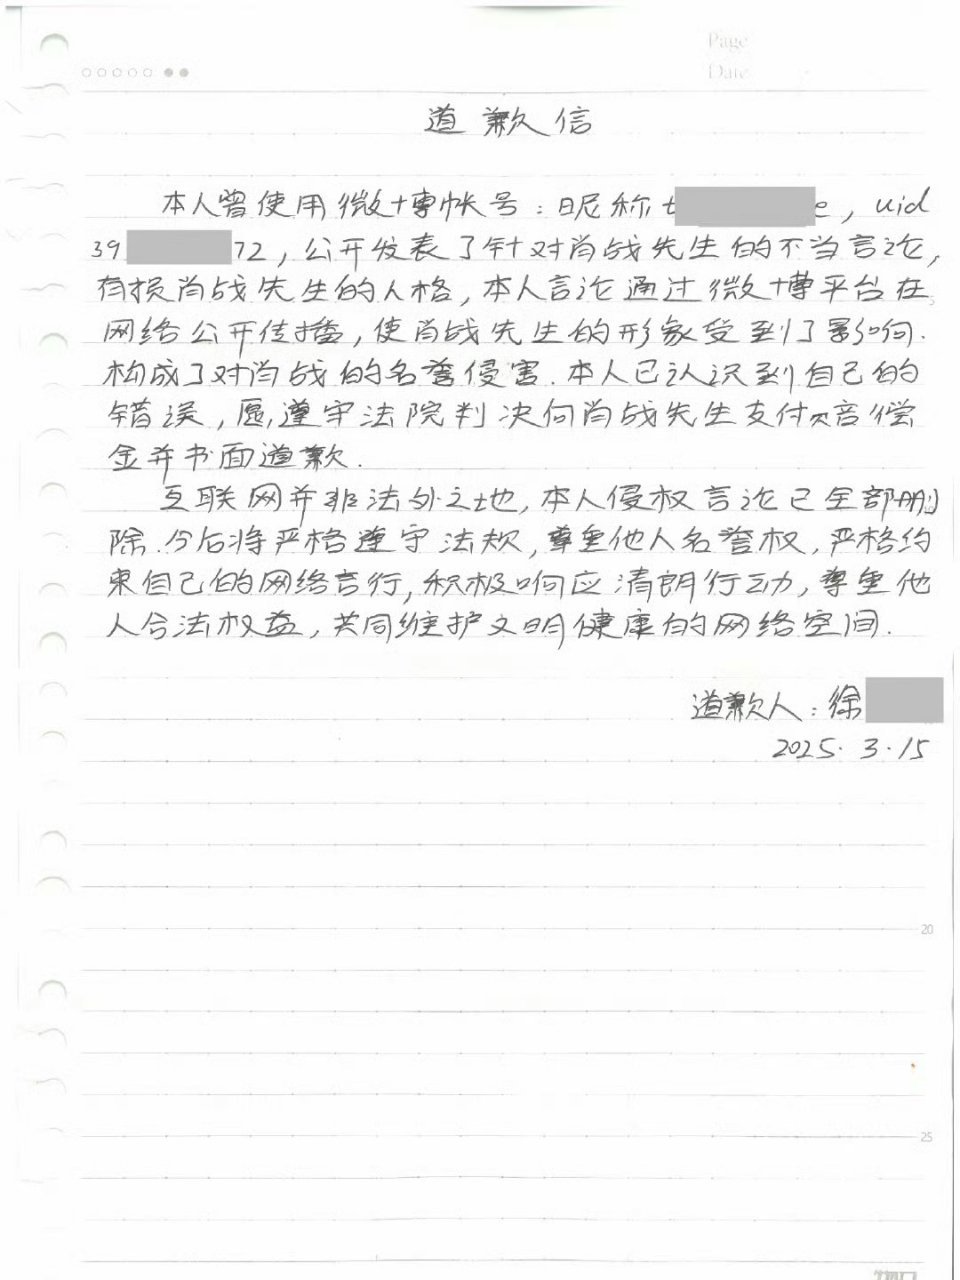 Page
Date
道歉信
本人曾使用微博帐号:昵称t e,uid
39 72,公开发表了针对肖战先生的不当言论,
有损肖战先生的人格,本人言论通过微博平台在
网络公开传播,使肖战先生的形象受到了影响.
构成了对肖战的名誉侵害.本人已认识到自己的
错误,愿遵守法院判决向肖战先生支付赔偿
金并书面道歉.
互联网并非法外之地,本人侵权言论已全部删
除.今后将严格遵守法规,尊重他人名誉权,严格约
束自己的网络言行,积极响应清朗行动,尊重他
人合法权益,共同维护文明健康的网络空间.
道歉人:徐
2025.3.15
20
25